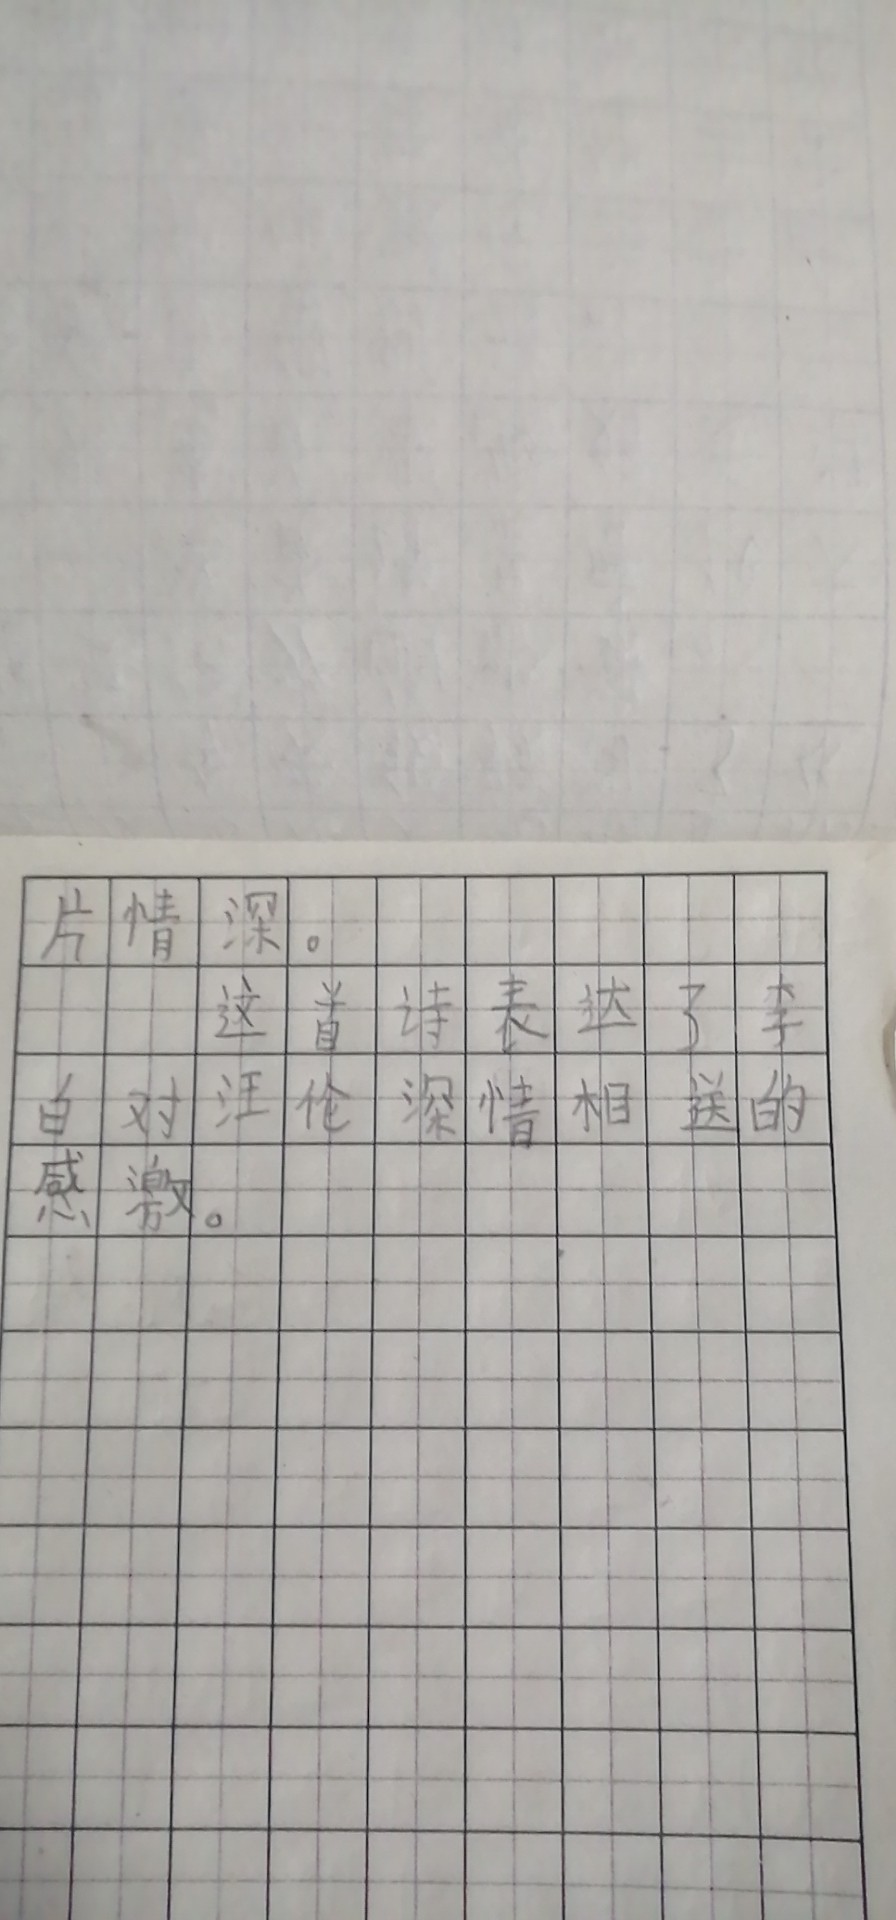 片情深。
这首诗表达了李
白对汪伦深情相送的
感激。